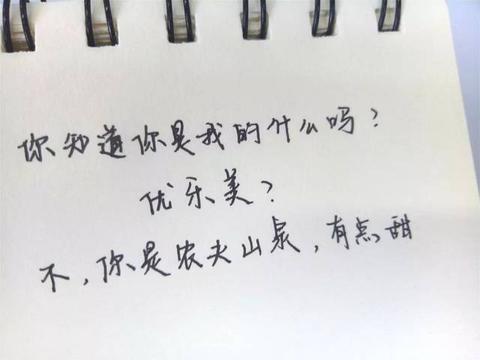 你知道你是我的什么吗？
优乐美？
不，你是农夫山泉，有点甜